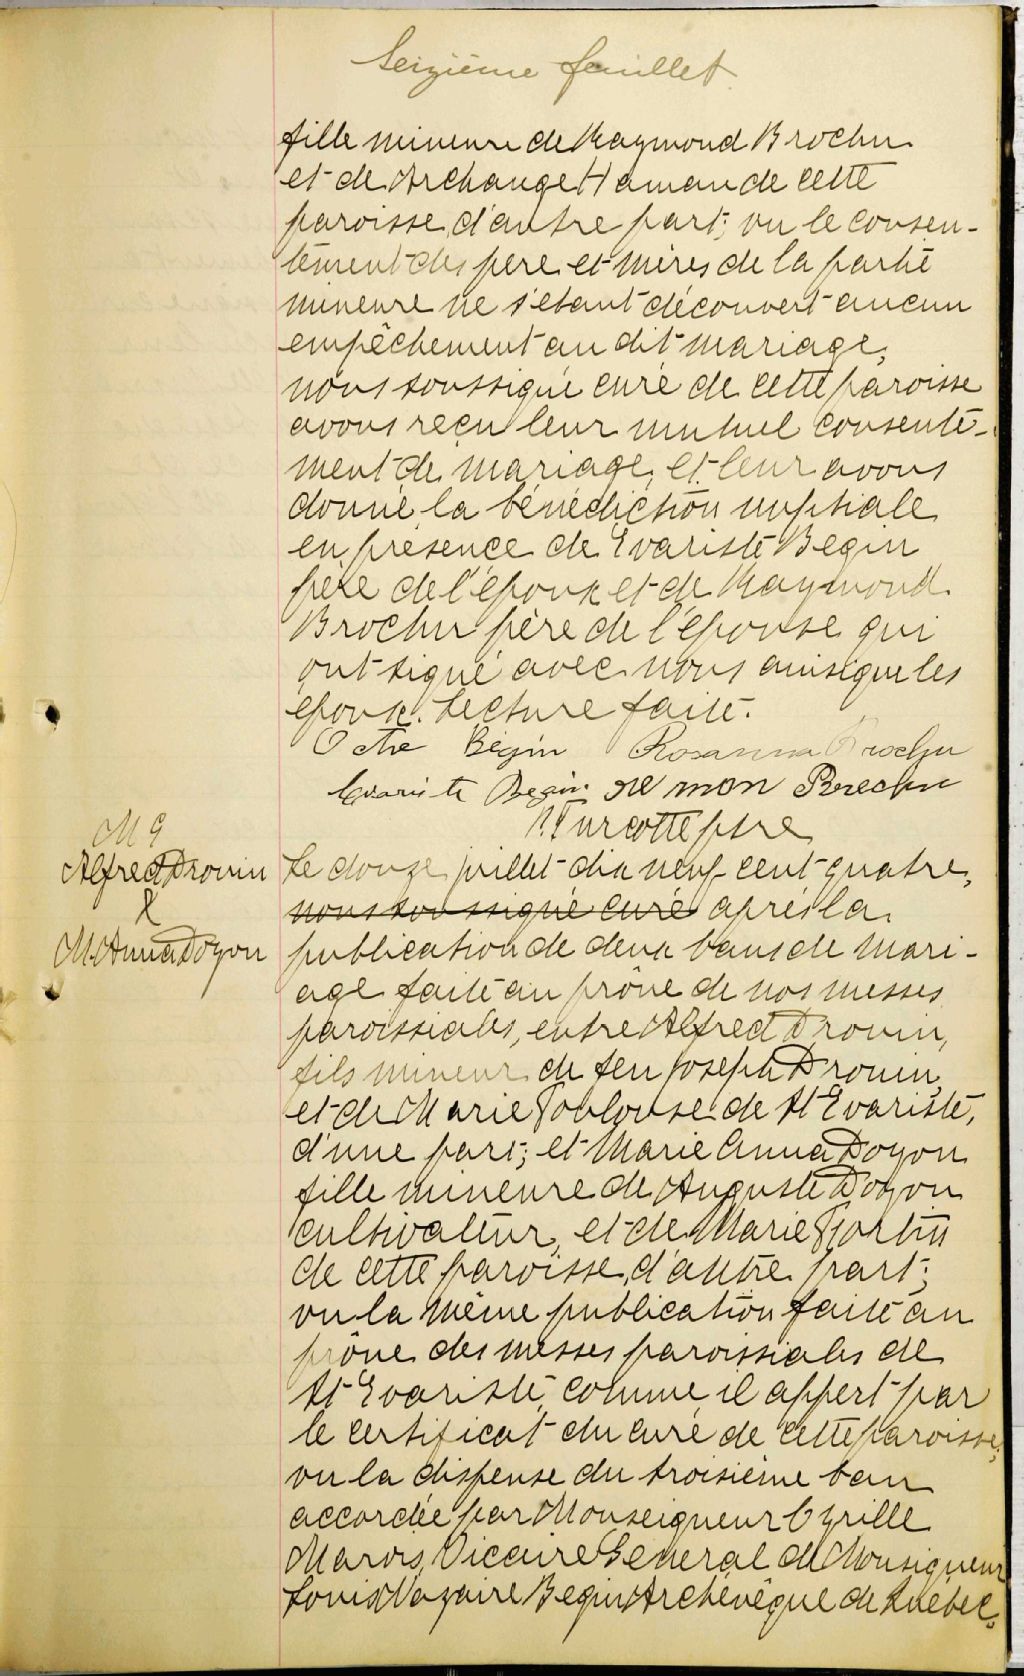 Seizième feuillet
fille mineure de Raymond Brochu
et de Archange Haman de cette
paroisse, d'autre part; vu le consen-
tement des père et mères de la partie
mineure ne s'étant découvert aucun
empêchement au dit mariage,
nous soussigné curé de cette paroisse
avons reçu leur mutuel consente-
ment de mariage, et leur avons
donné la bénédiction nuptiale
en présence de Evariste Begin
père de l'époux et de Raymond
Brochu père de l'épouse qui
ont signé avec nous ainsi que les
époux. Lecture faite.
Begin Rosanna Brochu
Evariste Begin re mon Brechu
Turcotte ptre
M 9
Alfred Drouin
&
M. Anna Doyon
Le douze juillet dix neuf cent quatre,
nous soussigné curé après la
publication de deux bans de mari-
age faite au prône de nos messes
paroissiales, entre Alfred Drouin,
fils mineur de feu Joseph Drouin,
et de Marie Toulouse de St Evariste,
d'une part; et Marie Anna Doyon
fille mineure de Auguste Doyon
cultivateur, et de Marie Fortin
de cette paroisse, d'autre part;
vu la même publication faite au
prône des messes paroissiales de
St Evariste, comme il appert par
le certificat du curé de cette paroisse;
vu la dispense du troisième ban
accordée par Monseigneur Cyrille
Marois, Vicaire Général de Monsigneur
Louis Nazaire Begin Archévêque de Québec,